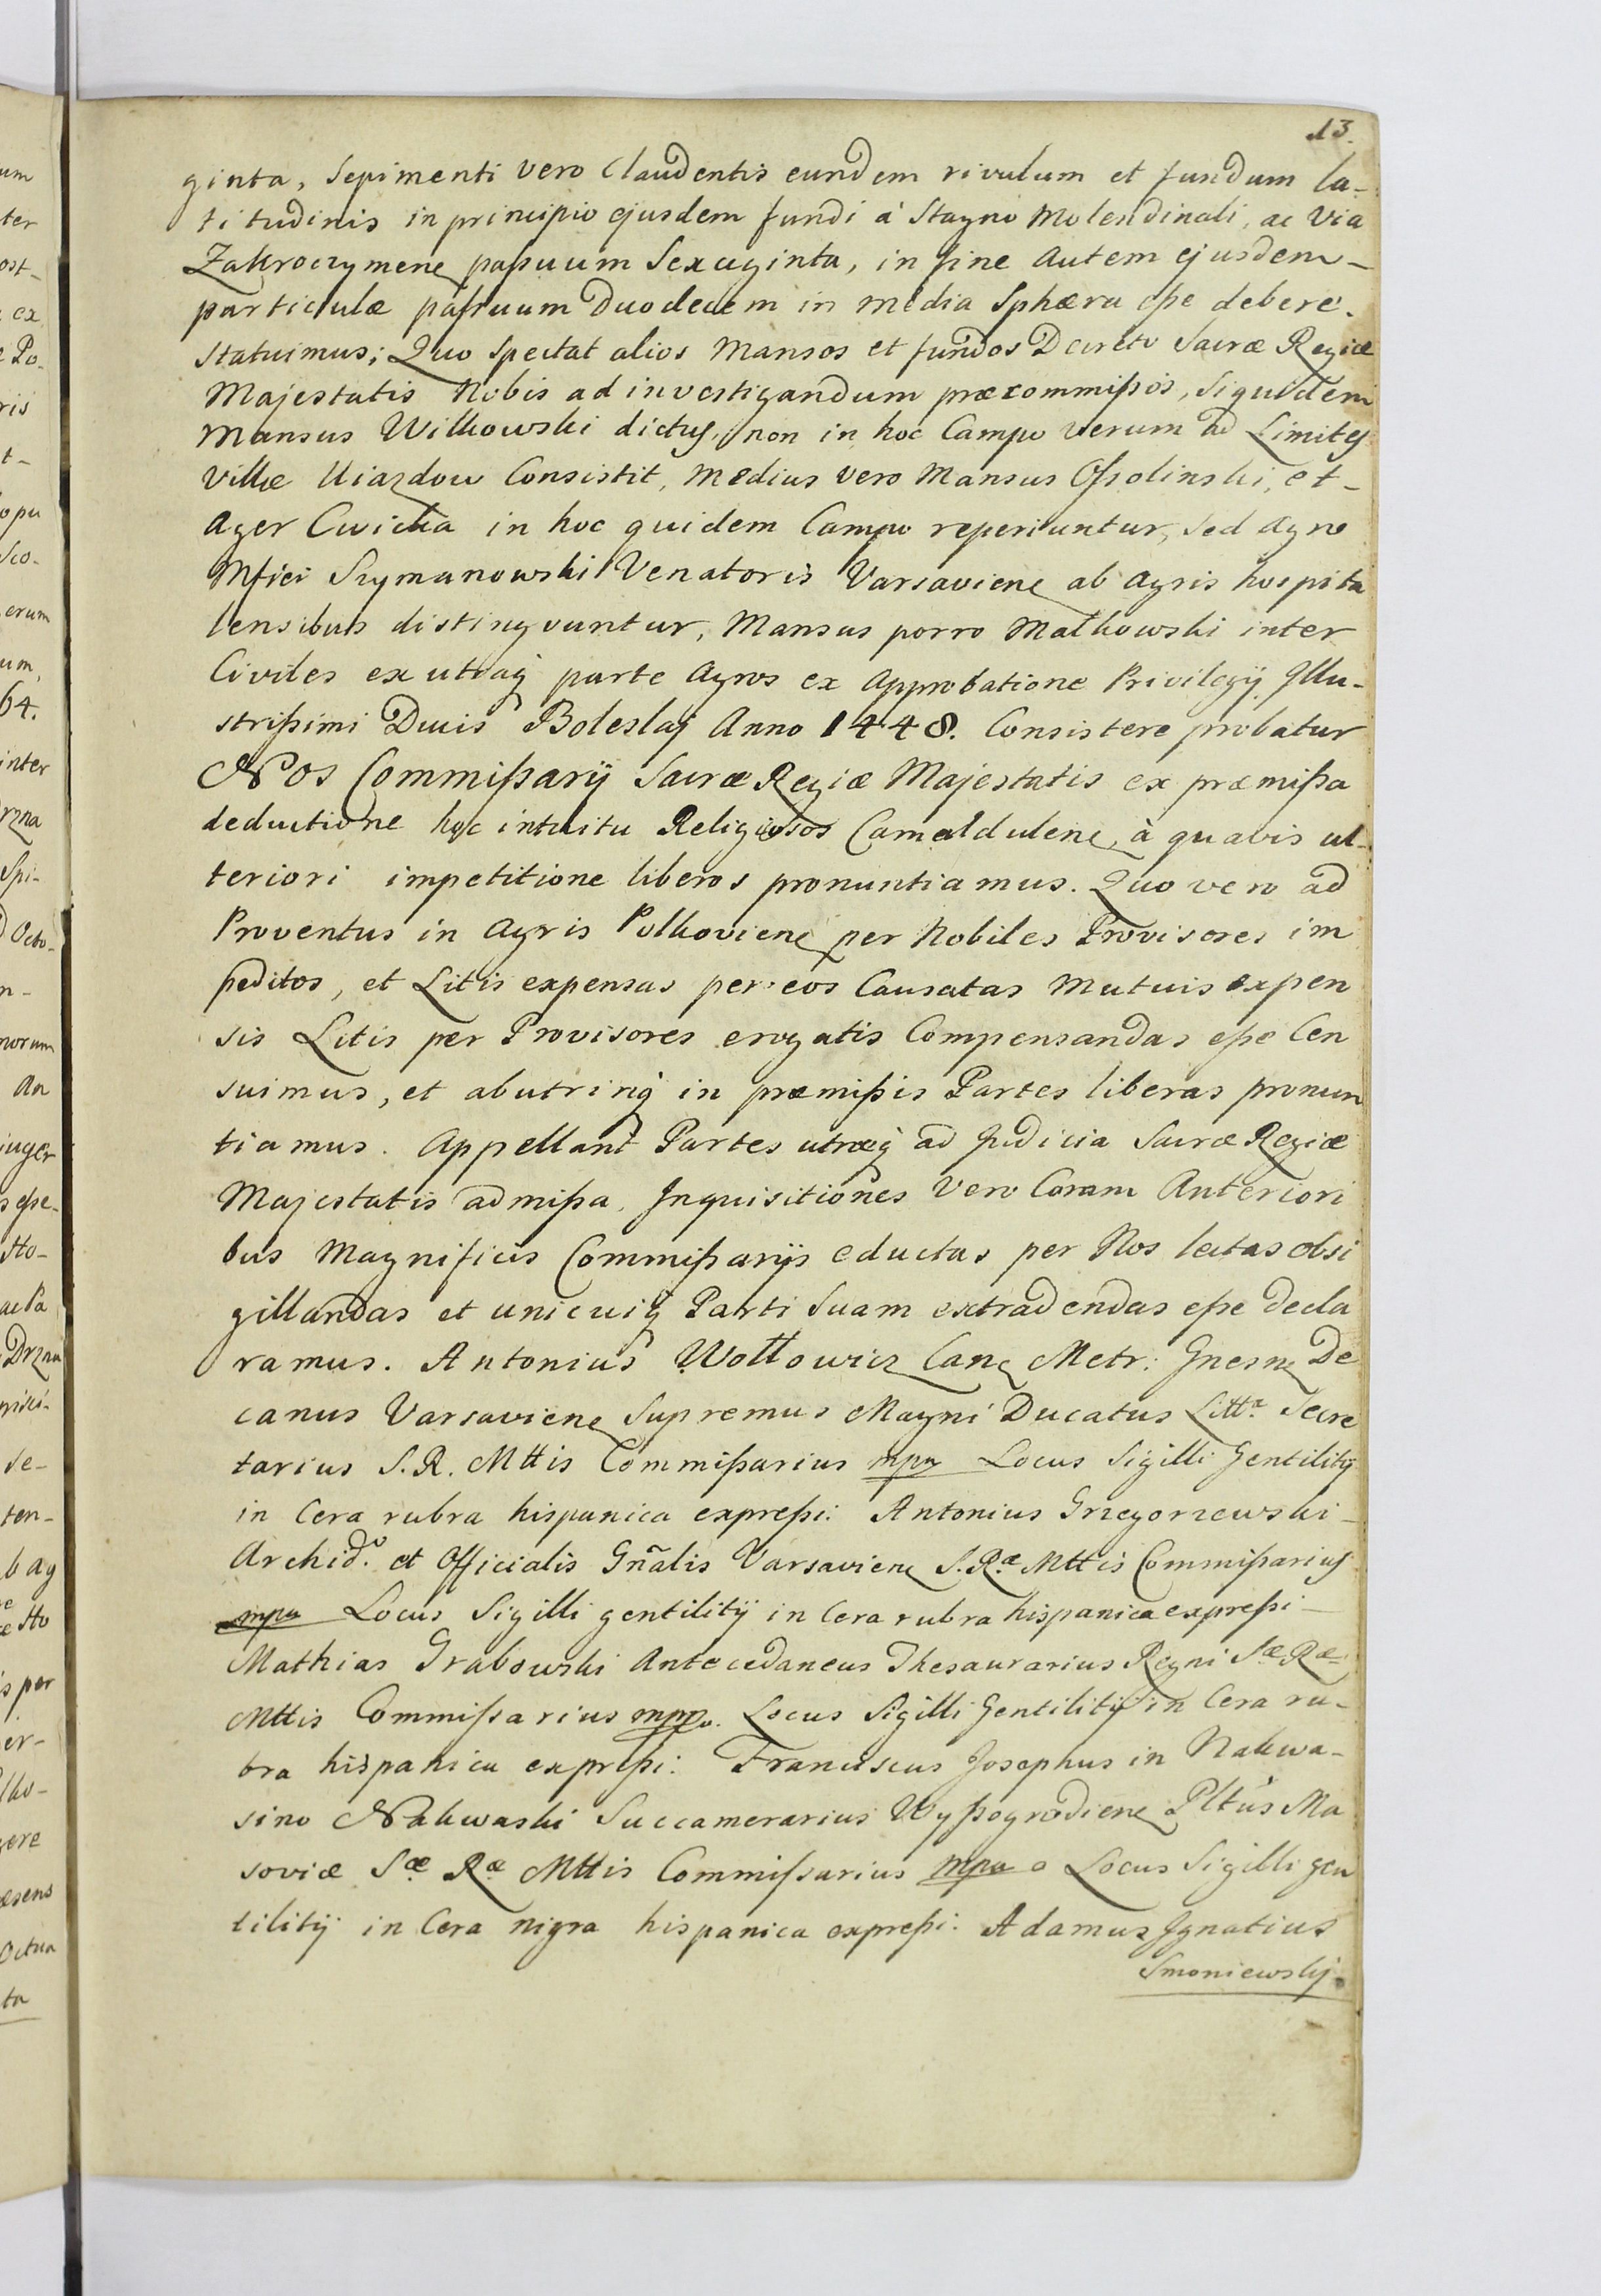 13.
ginta, Sepimenti vero Claudentis eundem rivulum et fundum la-
titudinis in principio ejusdem fundi à Stagno Molendinali, ac Via
Zakroczymene paßuum Sexaginta, in fine autem ejusdem-
particulæ paßuum Duodecem in media Sphæra eße debere.
Statuimus; Quo spectat alios Mansos et fundos Decreto Sacræ Regiæ
Majestatis Nobis ad investigandum præcommißos, Siquidem
Mansus Wilkowski dictus, non in hoc Campo verum ad Limites
Villæ Uiazdow Consistit, Medius vero Mansus Oßolinski, et-
Ager Cwicka in hoc quidem Campo reperiuntur, Sed agro
Mfici Szymanowski Venatoris Varsaviene ab agris hospita
lensibus distingvuntur, Mansus porro Malkowski inter
Civiles ex utraq parte agros ex Approbatione Privilegÿ Illu-
strißimi Ducis Boleslaj Anno 1448. Consistere probatur
Nos Commißarÿ Sacræ Regiæ Majestatis ex præmißa
deductione hoc intuitu Religiosos Camaldulene à quavis ul-
teriori impetitione liberos pronuntiamus. Quo vero ad
Proventus in Agris Polkoviene per Nobiles Provisores im
peditos, et Litis expensas per eos Causatas Mutuis expen
sis Litis per Provisores erogatis Compensandas eße Cen
suimus, et abutrinq in præmißis Partes liberas pronun
tiamus. Appellant Partes utræq ad Judicia Sacræ Regiæ
Majestatis admißa. Inquisitiones Vero Coram Anteriori
bus Magnificis Commißarÿs eductas per Nos lectas obsi
gillandas et unicuiq Parti Suam extradendas eße decla
ramus. Antonius Wottowicz Cane Metr: Gnesne De
canus Varsaviene Supremus Magni Ducatus Littæ Secre
tarius S. R. Mttis Commißarius mpa Locus Sigilli Gentilitÿ
in Cera rubra hispanica expreßi: Antonius Grzegorzewski-
Archid: et Officialis Gñalis Varsaviene S. Ræ Mttis Commißarius
mpa Locus Sigilli gentilitÿ in Cera rubra hispanica expreßi-
Mathias Grabowski Antecedaneus Thesaurarius Regni Sæ Ræ
Mttis Commißarius mpp. Locus Sigilli Gentilitÿ in Cera ru-
bra hispanica expreßi: Franciscus Josephus in Nakwa-
sino Nakwaski Succamerarius Wyßogrodiene Pltus Ma
soviæ Sæ Ræ Mttis Commißarius mpa Locus Sigilli gen
tilitÿ in Cera nigra hispanica expreßi: Adamus Ignatius
Smoniewskÿ.